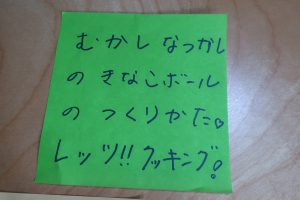 むかし なつかし
の きなこボール
の つくりかた。
レッツ!! クッキング!